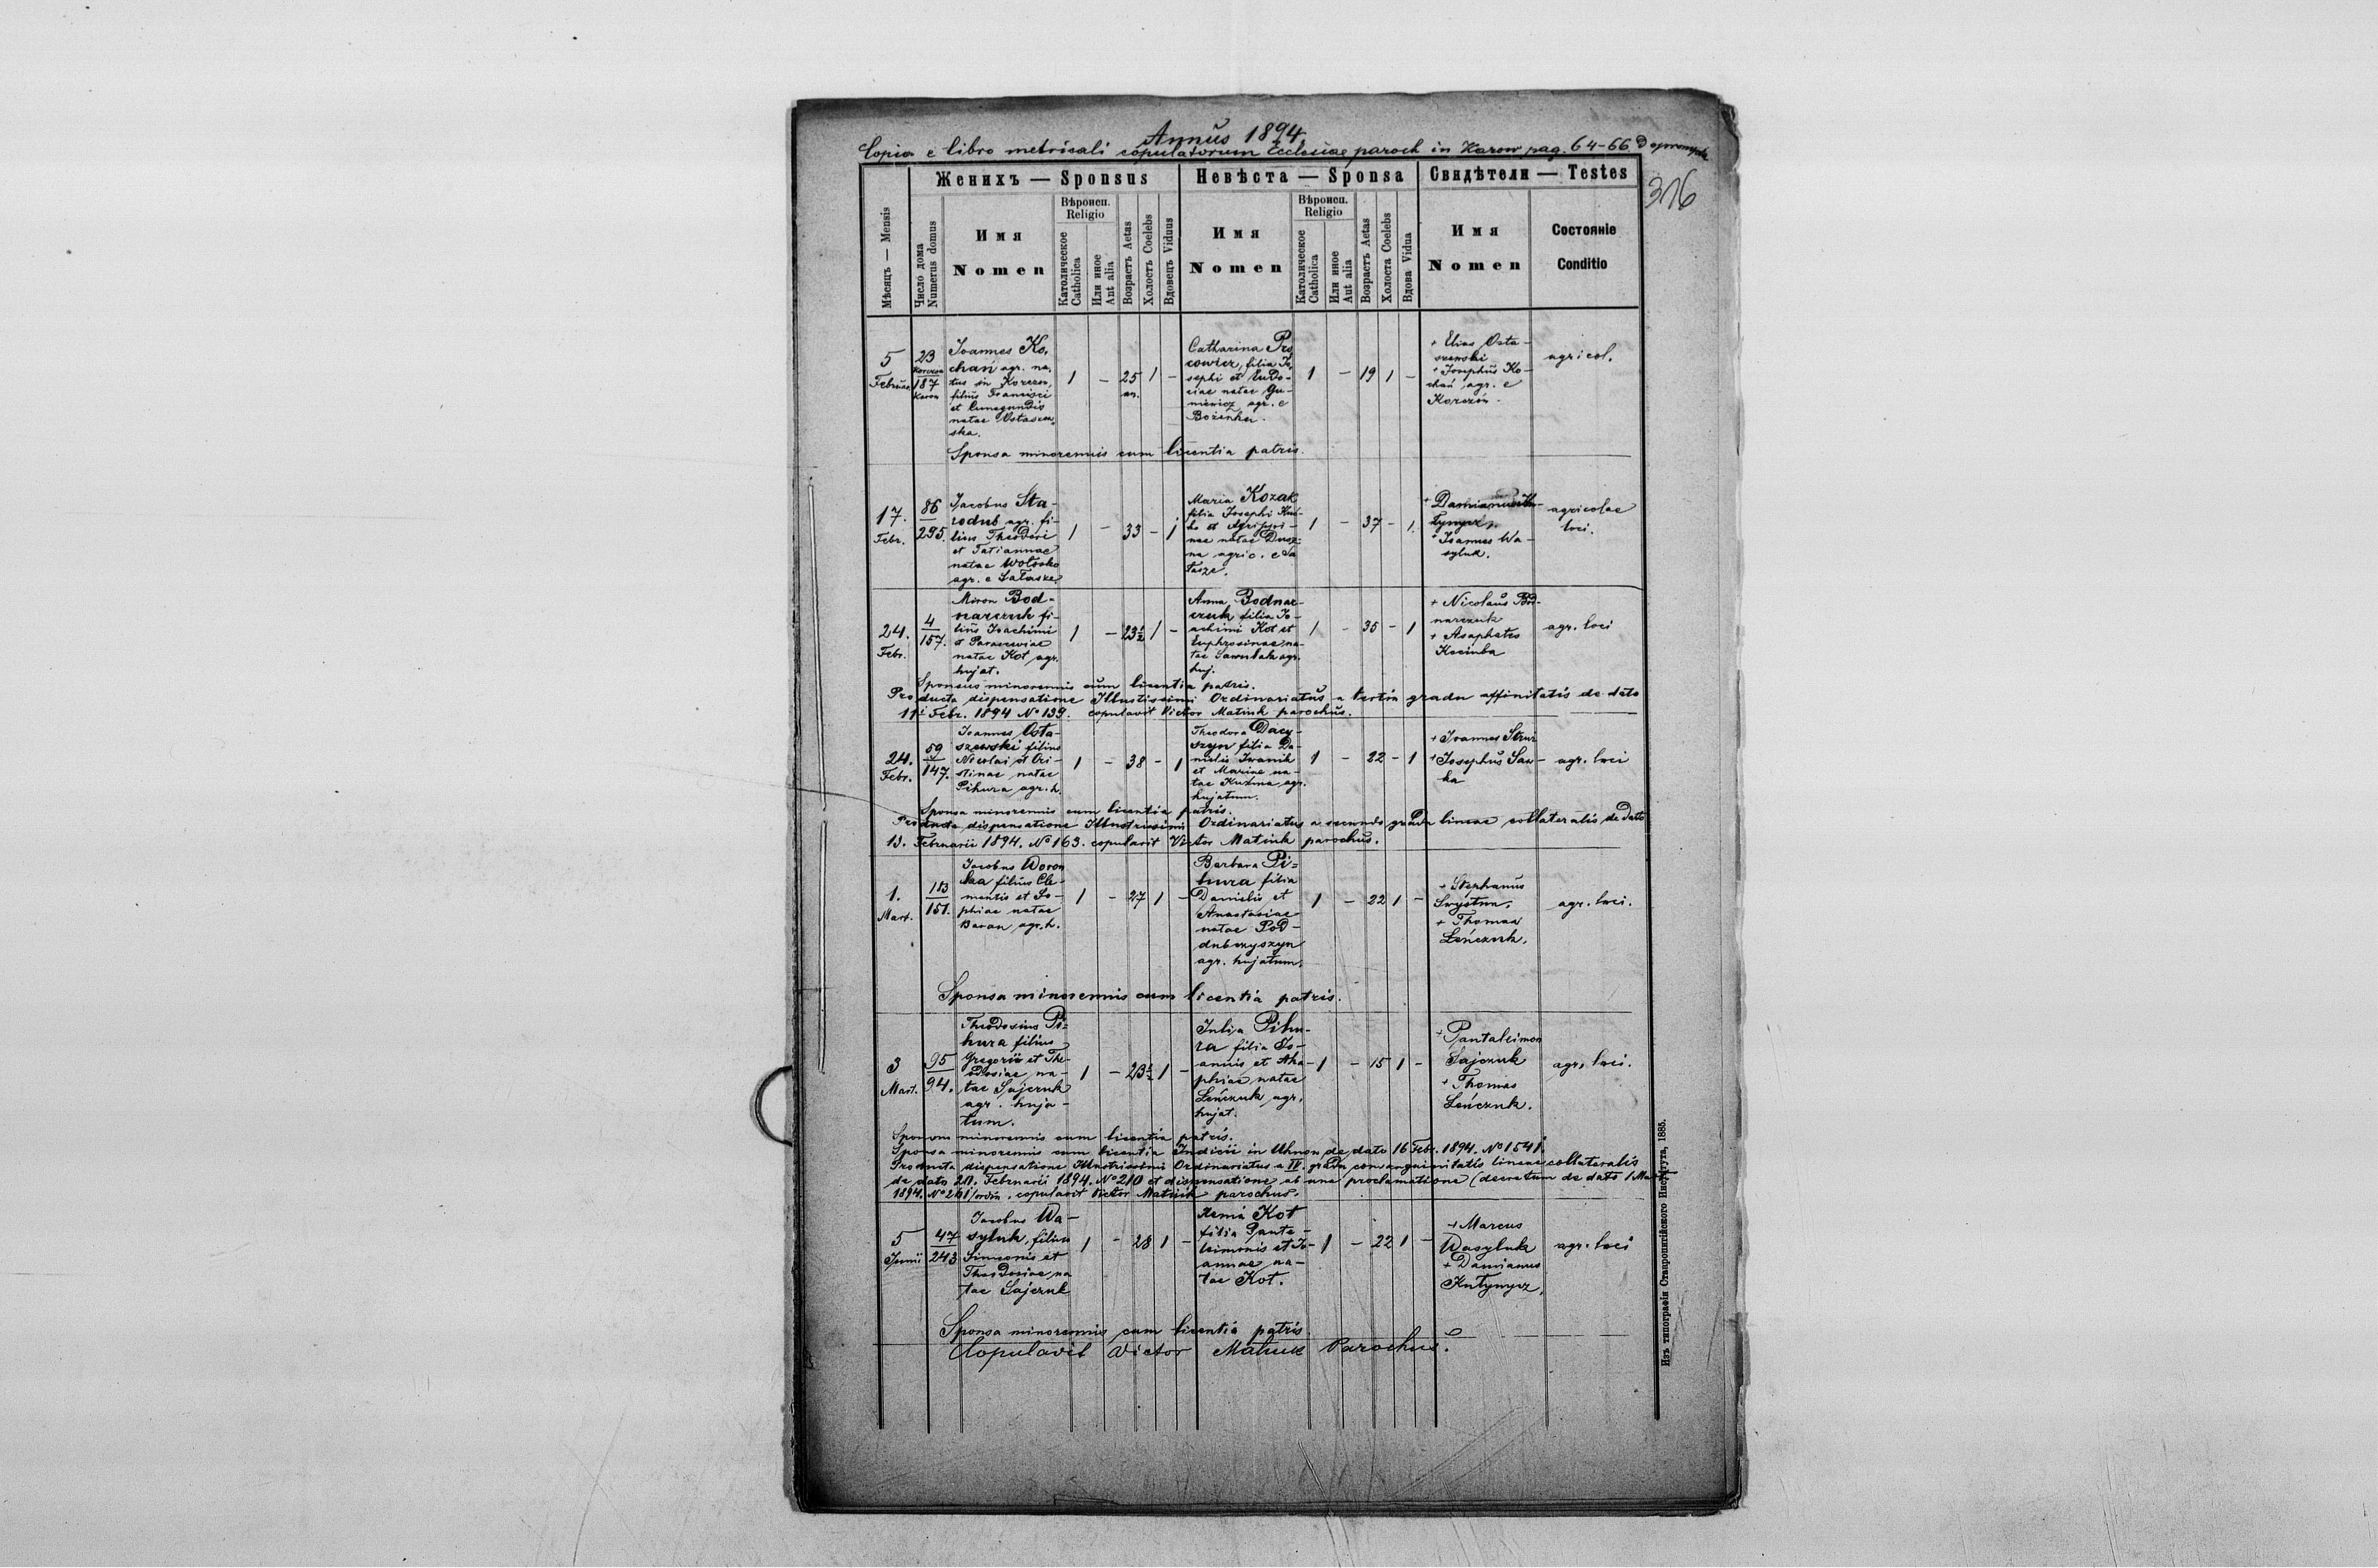 Annus 1894
Copia e libro metricali copulatorum Ecclesiae paroch in Karow pag. 64-66.
316
Женихъ — Sponsus
Невѣста — Sponsa
Свидѣтели — Testes
Мѣсяцъ — Mensis
Число дома
Numerus domus
Имя
Nomen
Вѣроисп.
Religio
Католическое
Catholica
Или иное
Aut alia
Возрастъ Aetas
Холостъ Coelebs
Вдовецъ Viduus
Имя
Nomen
Вѣроисп.
Religio
Католическое
Catholica
Или иное
Aut alia
Возрастъ Aetas
Холоста Coelebs
Вдова Vidua
Имя
Nomen
Состояніе
Conditio
5
Februar
23
Korczon
187
Karow
Joannes Ko-
chań agr. na-
tus in Korczon,
filius Francisci
et Cunegundis
natae Ostaszew-
ska.
1 — 25 1 —
an.
Catharina Pro
cowier, filia Jo-
sephi et Eudo-
ciae natae Gu-
niewicz agr. e
1 — 19 1 —
+ Elias Osta-
szewski
+ Josephus Ko-
chań agr. e
Korczon.
agricol.
Sponsa minorennis cum licentia patris.
17.
Febr.
86
295.
Jacobus Sta-
rodub agr. fi-
lius Theodori
et Tatiannae
natae Wołosko
agr. e Sałasze
1 — 33 — 1
Maria Kozak
filia Josephi
et Agrippi-
nae natae
agric. e Sa
łasze.
1 — 37 — 1.
+ Damianus Ku-
tynycz
+ Joannes Wa-
syluk.
agricolae
loci.
24.
Febr.
4
157.
Miron Bod-
narczuk fi-
lius Joachimi
et Parasceviae
natae Kot agr.
hujat.
1 — 23½ 1 —
Anna Bodnar-
czuk filia Jo-
achimi Kot et
Euphrosinae na-
tae agr.
huj.
1 — 35 — 1
+ Nicolaus Bod-
narczuk
+ Asaphates
Kociuba
agr. loci
Sponsus minorennis cum licentia patris.
Producta dispensatione Illustrissimi Ordinariatus a tertio gradu affinitatis de dato
11 Febr. 1894 No 139. copulavit Victor Matiuk parochus.
24.
Febr.
59
147.
Joannes Osta-
szewski filius
Nicolai et Cri-
stinae natae
Pihura agr. h.
1 — 38 — 1
Theodora Dacy-
szyn filia Da-
nielis Iwanik
et Marine na-
tae Kuźma agr.
hujatum.
1 — 22 — 1
+ Joannes Strus
+ Josephus Saw-
ka
agr. loci
Sponsa minorennis cum licentia patris.
Producta dispensatione Illustrissimi Ordinariatus a secundo gradu lineae collateralis de dato
13. Februarii 1894. No 163. copulavit Victor Matiuk parochus.
1.
Mart.
113
151.
Jacobus Woron
ka filius Cle-
mentis et So-
phiae natae
Baran agr. h.
1 — 27 1 —
Barbara Pi-
hura filia
Danielis et
Anastasiae
natae Pod-
dubczyszyn
agr. hujatum.
1 — 22 1 —
+ Stephanus
Swystun.
+ Thomas
Leńczuk.
agr. loci.
Sponsa minorennis cum licentia patris.
3
Mart.
95
94.
Theodosius Pi-
hura filius
Gregorii et The-
odosiae na-
tae Sajczuk
agr. huja-
tum.
1 — 23½ 1 —
Julia Pihu-
ra filia Jo-
annis et Aha-
phiae natae
Leńczuk agr.
hujat.
1 — 15 1 —
+ Pantaleimon
Sajczuk
+ Thomas
Leńczuk.
agr. loci.
Sponsus minorennis cum licentia patris.
Sponsa minorennis cum licentia Judicii in Uhnow de dato 16 Febr. 1894. No 1541.
Producta dispensatione Illustrissimi Ordinariatus a IV. gradu consanguinitatis lineae collateralis
de dato 20. Februarii 1894. No 210 et dispensatione ab una proclamatione (decretum de dato 1 Martii
1894. No 241/ordin. copulavit Victor Matiuk parochus.
5
Junii
47
243
Jacobus Wa-
syluk, filius
Simeonis et
Theodosiae na
tae Sajczuk
1 — 28 1 —
Xenia Kot
filia Pante-
leimonis et Jo-
annae na-
tae Kot.
1 — 22 1 —
+ Marcus
Wasyluk
+ Damianus
Kutynycz.
agr. loci
Sponsa minorennis cum licentia patris
Copulavit Victor Matiuk Parochus.
Изъ типографіи Ставропигійского Института, 1885.